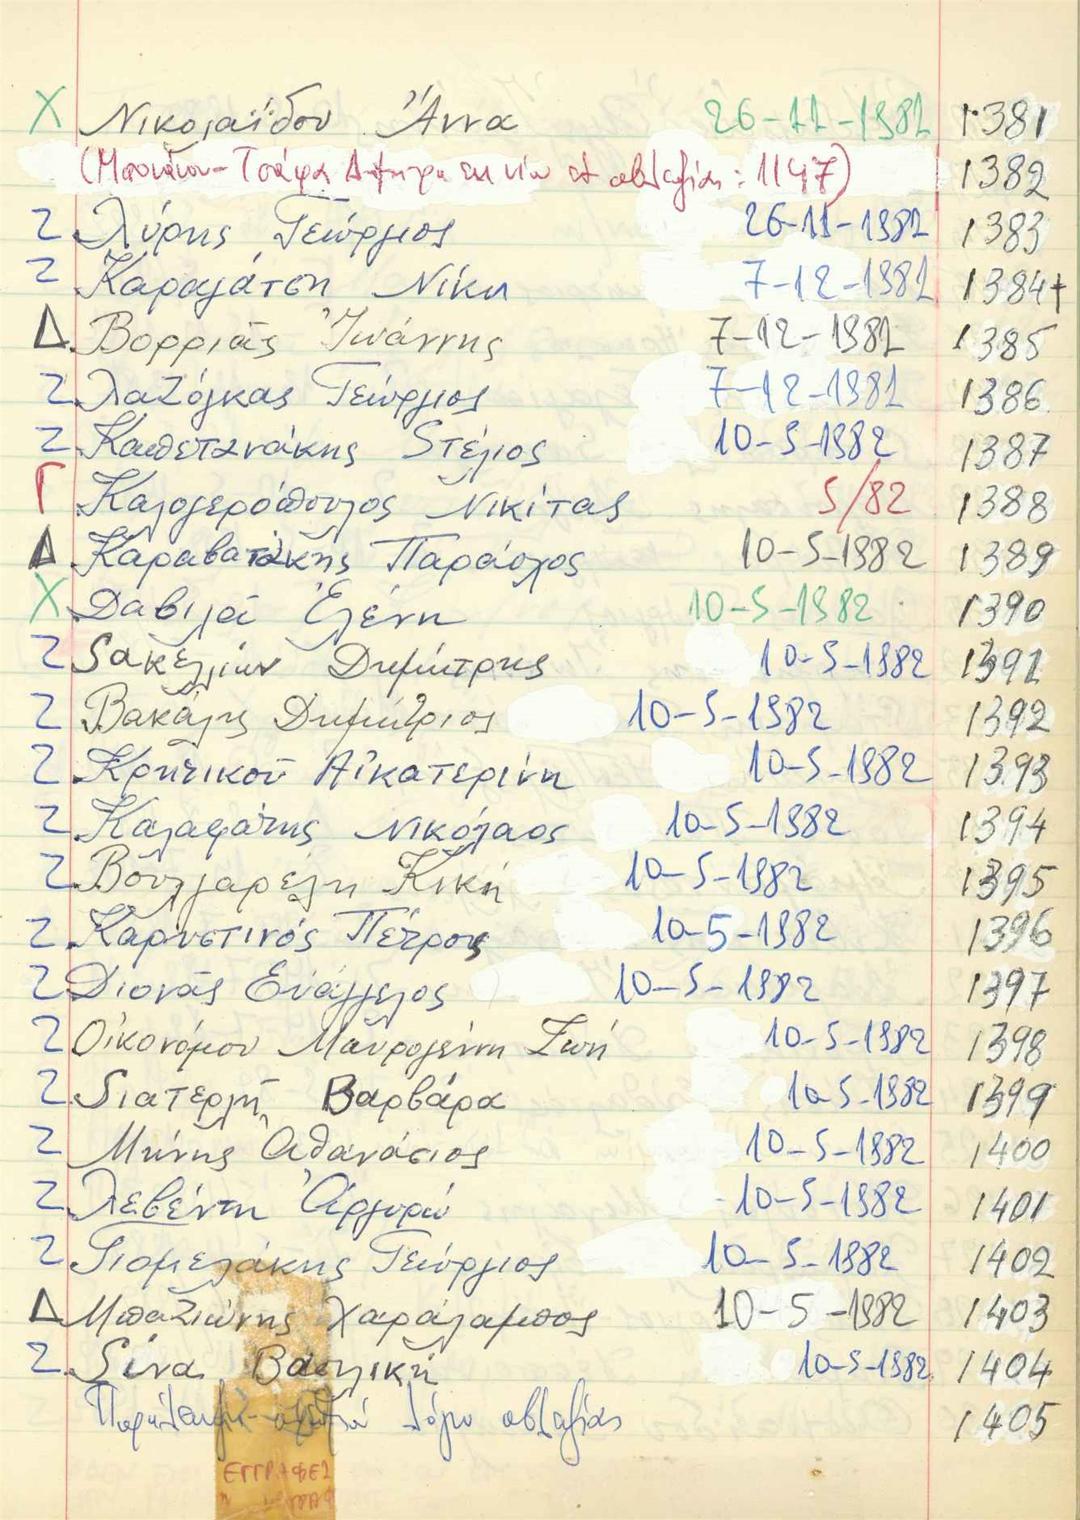 Χ Νικολαΐδου Άννα 26-11-1981 1381
(Μπούτου-Τσάφα Δήμητρα 1147) 1382
Ζ Λύρης Γεώργιος 26-11-1981 1383
Ζ Καραγάτση Νίκη 7-12-1981 1384+
Δ Βορριᾶς Ἰωάννης 7-12-1981 1385
Ζ Λαζόγκας Γεώργιος 7-12-1981 1386
Ζ Καπετανάκης Στέλιος 10-5-1982 1387
Γ Καλογερόπουλος Νικίτας 5/82 1388
Δ Καραβατάκης Παράσχος 10-5-1982 1389
Χ Δαβιλᾶ Ἑλένη 10-5-1982 1390
Ζ Σακελλίων Δημήτρης 10-5-1982 1391
Ζ Βακάλης Δημήτριος 10-5-1982 1392
Ζ Κρητικοῦ Αἰκατερίνη 10-5-1982 1393
Ζ Καλαφάτης Νικόλαος 10-5-1982 1394
Ζ Βουλγαρέλη Κική 10-5-1982 1395
Ζ Καρυστινός Πέτρος 10-5-1982 1396
Ζ Διονᾶς Εὐάγγελος 10-5-1982 1397
Ζ Οἰκονόμου Μαυρογένη Ζωή 10-5-1982 1398
Ζ Σιατερλῆ Βαρβάρα 10-5-1982 1399
Ζ Μήνης Ἀθανάσιος 10-5-1982 1400
Ζ Λεβέντη Ἀργυρώ 10-5-1982 1401
Ζ Γιομελάκης Γεώργιος 10-5-1982 1402
Δ Μπαζιώνης Χαράλαμπος 10-5-1982 1403
Ζ Σίνα Βασιλική 10-5-1982 1404
λόγω 1405
ΕΓΓΡΑΦΕΣ